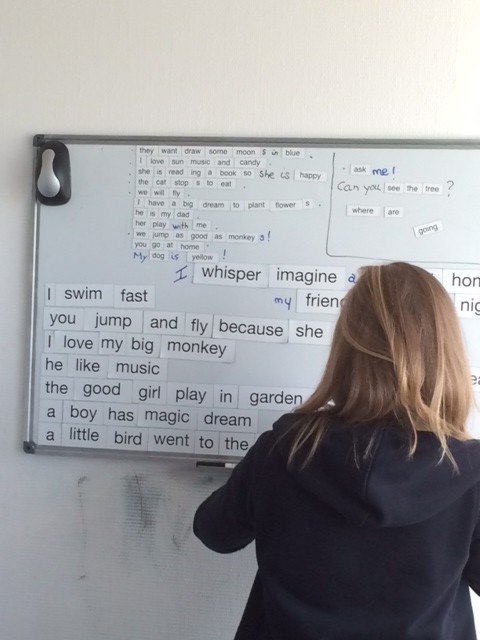 they want draw some moon s in blue .
I love sun music and candy .
she is read ing a book so she is happy
the cat stop s to eat .
we will fly .
I have a big dream to plant flower s .
he is my dad .
her play with me .
we jump as good as monkey s!
you go at home .
My dog is yellow !
ask me!
Can you see the tree ?
where are
going
I whisper imagine a
my
I swim fast
you jump and fly because she
I love my big monkey
he like music
the good girl play in garden
a boy has magic dream
a little bird went to the